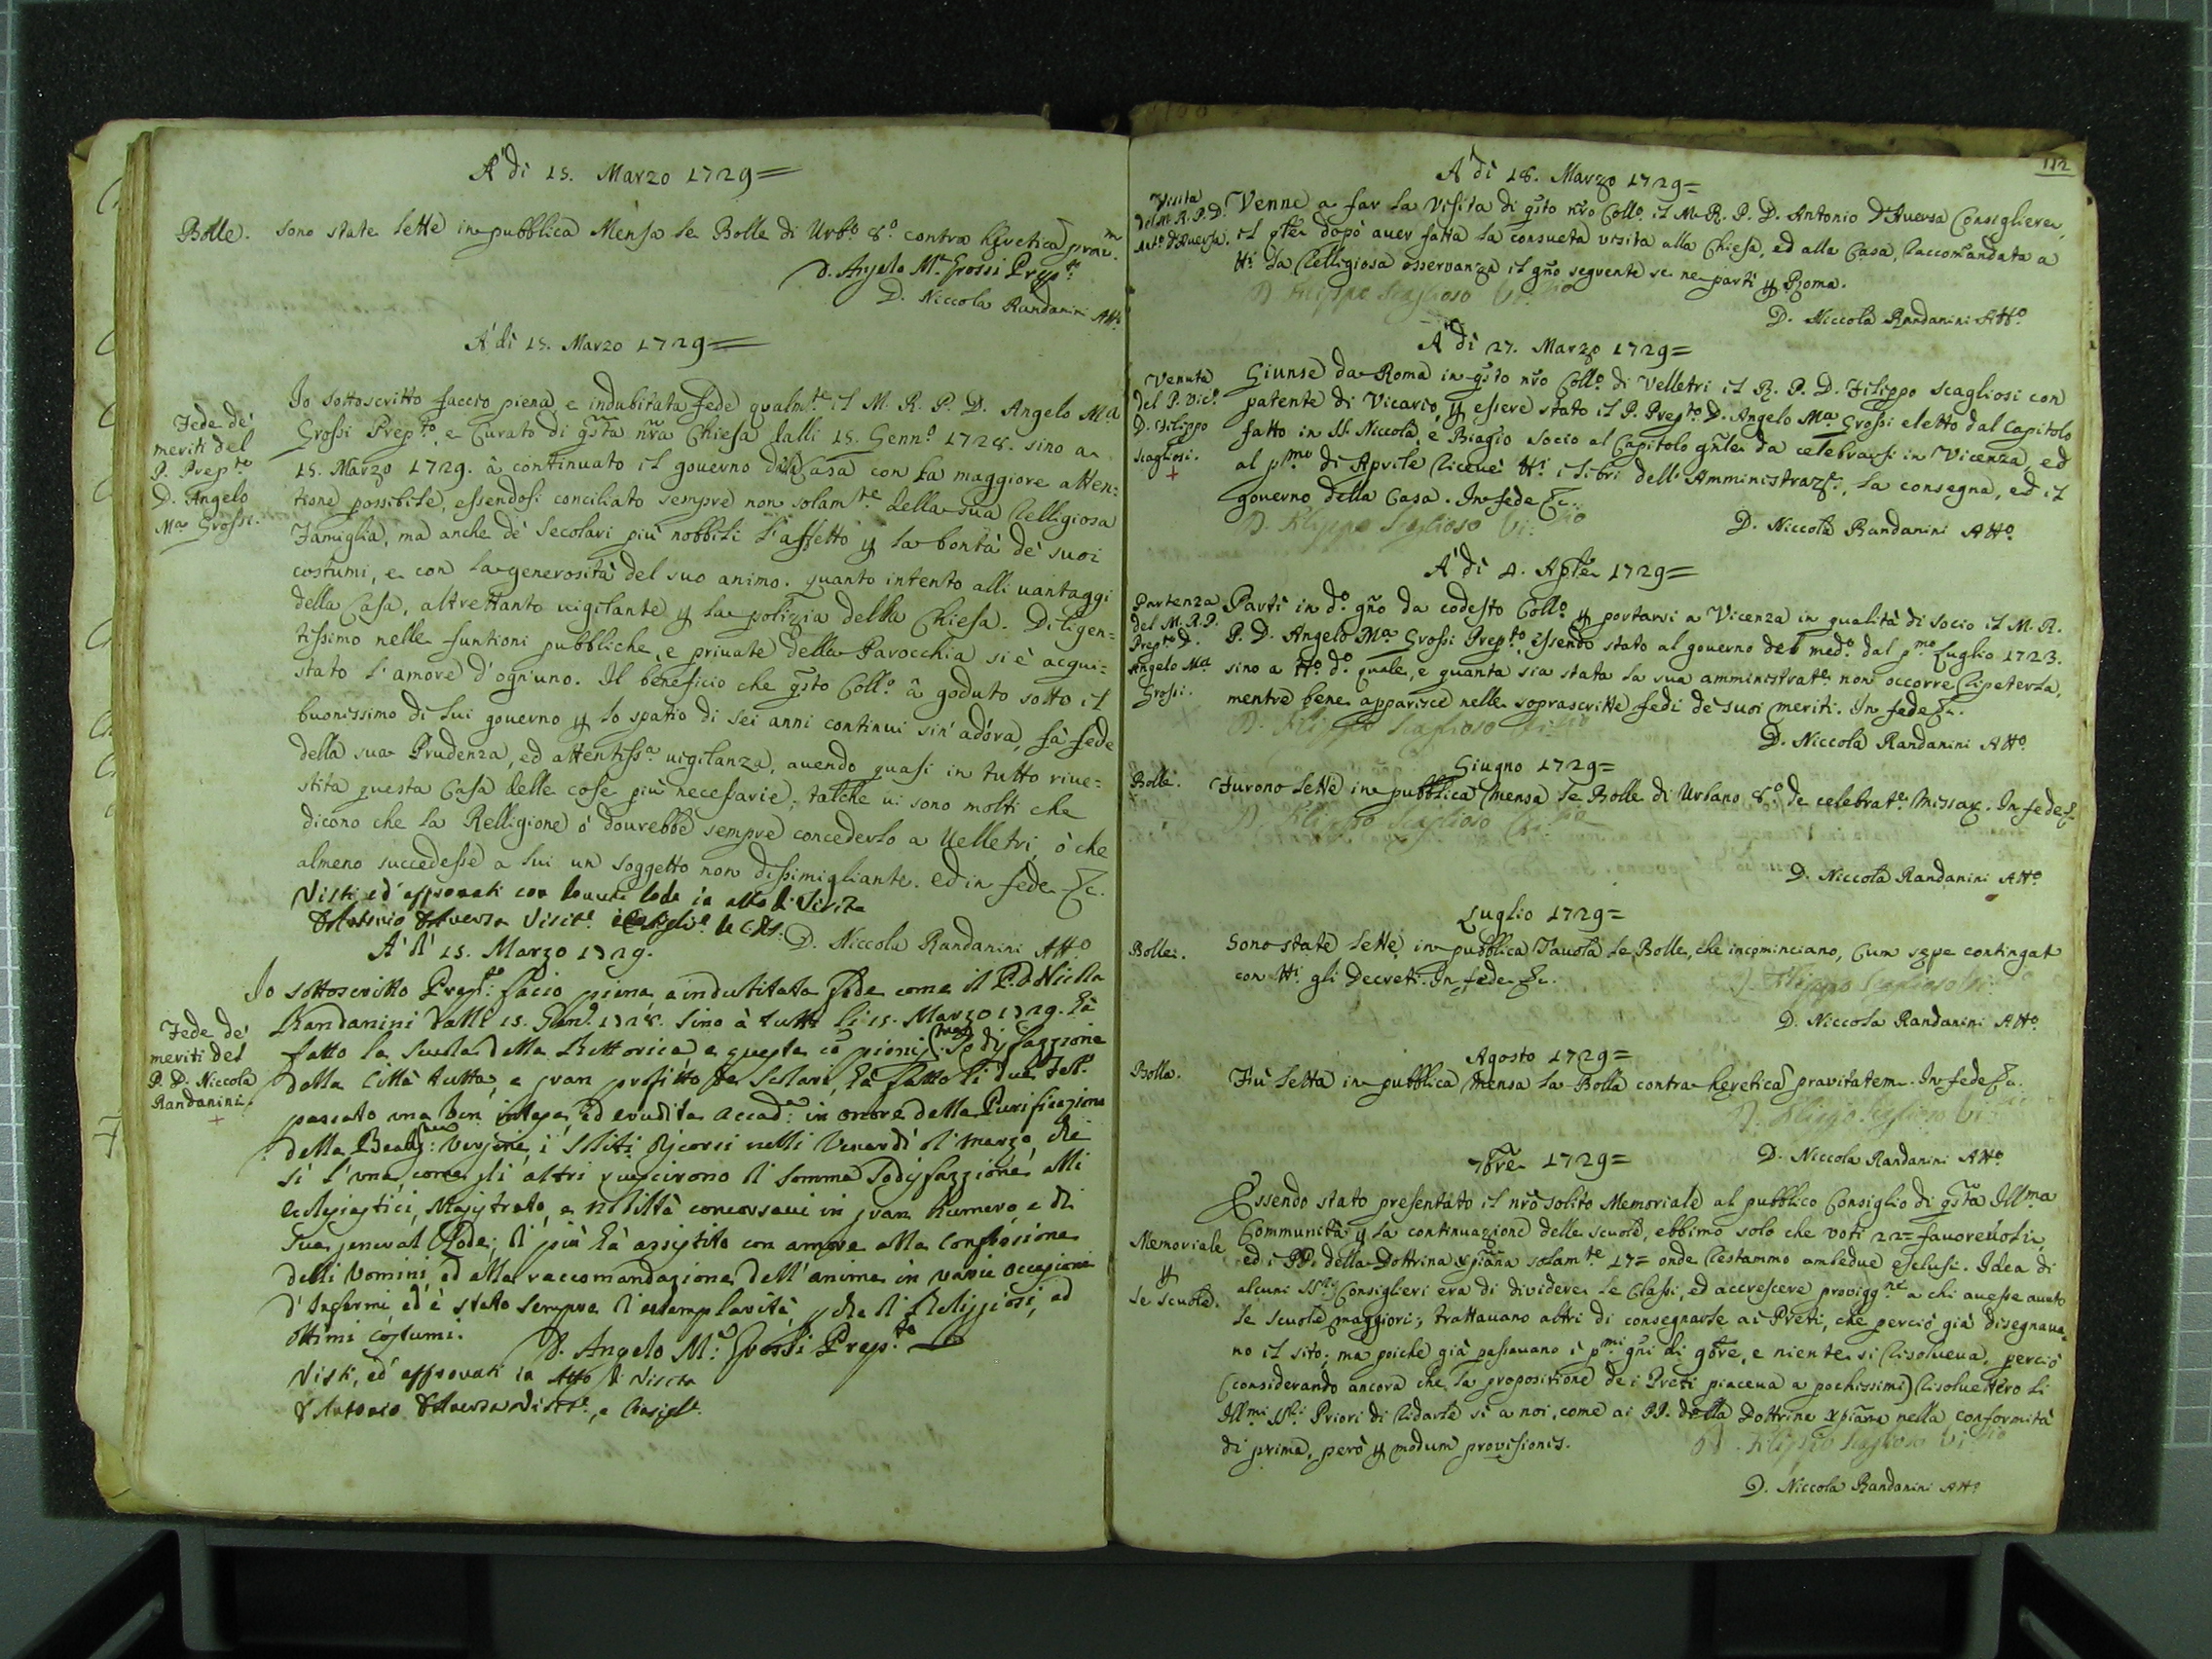 A' di 15. Marzo 1729=
Bolle.
Sono state lette in pubblica Mensa le Bolle di Urb.º 8.º contra hęretica prau.m
D. Angelo M.a Grossi Prep.to
D. Niccola Randanini Att.º
A' di 15. Marzo 1729=
Fede de'
meriti del
P. Prep.to
D. Angelo
M.a Grossi.
Io sottoscritto faccio piena, e indubitata fede qualm.te il M. R. P. D. Angelo M.a
Grossi Prep.to, e Curato di q̃sta nr̃a Chiesa dalli 15. Genn.º 1728. sino a
15. Marzo 1729. à continuato il governo della Casa con la maggiore atten=
tione possibile, essendosi conciliato sempre non solam.te della sua Relligiosa
Famiglia, ma anche de' secolari più nobbili l'affetto p la bontà de' suoi
costumi, e con la generosità del suo animo. Quanto intento alli uantaggi
della Casa, altrettanto uigilante p la polizia della Chiesa. Diligen=
tissimo nelle funtioni pubbliche, e priuate della Parocchia si è acqui=
stato l'amore d'ogn'uno. Il beneficio che q̃sto Coll.º à goduto sotto il
buonissimo di lui governo p lo spatio di sei anni continui sin' ad'ora, fà fede
della sua Prudenza, ed attentiss.a uigilanza, auendo quasi in tutto riue=
stita questa Casa delle cose più necessarie, talche ui sono molti che
dicono che la Relligione ò dourebbe sempre concederlo a Uelletri, ò che
almeno succedesse a lui un soggetto non dissimigliante. Ed in fede &c.
Visti, ed' approuati con douuta lode in atto di Visita
D. Antonio D'Auersa Visit.e
D. Niccola Randanini Att.º
A' di 15. Marzo 1729.
Fede de'
meriti del
P. D. Niccola
Randanini.
+
Io sottoscritto Prep.to: facio piena e indubitata fede come il P. D. Nicola
Randanini dalli 15. Gen.º 1728. sino à tutti li 15. Marzo 1729. hà
fatto la scuola della Rettorica, e questa cõ pienis.ma sodisfazzione
della Città tutta, e gran profitto de scolari, hà fatto li due Feb.
passato una ben intesa, ed erudita accad.a in onore della Purificazione
della Beatis.ma: Vergine, i soliti discorsi nelli Venerdì di Marzo, che
sì l'una, come gli altri riuscirono di somma sodisfazzione alli
eclesiastici, Magistrato, e nobiltà concorsaui in gran numero, e di
sua general lode; di più hà assistito con amore alla Confessione
delli Uomini, ed alla raccomandazione dell'anime in varie occasioni
d'Infermi, ed'è stato sempre d'esemplarità, p che di Religgiosi, ed
ottimi costumi.
D. Angelo M.a: Grossi Prep.to
Visti, ed' approuati in Atto di Visita
D. Antonio D'Auersa Visit.e, e Consigl.e
112
A' di 18. Marzo 1729=
Visita
del M. R. P. D.
Ant.º d'Auersa.
Venne a far la Visita di q̃sto nr̃o Coll.º il M. R. P. D. Antonio d'Auersa Consigliere,
il q̃le dopò auer fatta la consueta visita alla Chiesa, ed alla Casa, raccomandata a
tt.i la Relligiosa osservanza il gñо seguente se ne partì p Roma.
D. Filippo Scaglioso Vic.rio
D. Niccola Randanini Att.º
A' di 27. Marzo 1729=
Venuta
del P. Vic.º
D. Filippo
Scagliosi.
+
Giunse da Roma in q̃sto nr̃o Coll.º di Velletri il R. P. D. Filippo Scagliosi con
patente di Vicario, p essere stato il P. Prep.to D. Angelo M.a Grossi eletto dal Capitolo
fatto in SS. Niccola, e Biagio socio al Capitolo gñle da celebrarsi in Vicenza, ed
al p.mo di Aprile riceué tt.i i libri dell'Amministraz.e, la consegna, ed il
governo della Casa. In fede &c.
D. Filippo Scaglioso Vic.rio
D. Niccola Randanini Att.º
A' di 4. Aple 1729=
Partenza
del M. R. P.
Prep.to D.
Angelo M.a
Grossi.
Partì in d.º gñо da codesto Coll.º p portarsi a Vicenza in qualità di socio il M. R.
P. D. Angelo M.a Grossi Prep.to, essendo stato al governo del med.º dal p.mo Luglio 1723.
sino a tt.º d.º Quale, e quanta sia stata la sua amministrat.e non occorre ripeterla,
mentre bene apparisce nelle soprascritte fedi de' suoi meriti. In fede &c.
D. Filippo Scaglioso Vic.rio
D. Niccola Randanini Att.º
Giugno 1729=
Bolle.
Furono lette in pubblica mensa le Bolle di Urbano 8.º de celebrat.e Missar. In fede &c.
D. Filippo Scaglioso Vic.rio
D. Niccola Randanini Att.º
Luglio 1729=
Bolle.
Sono state lette in pubblica Tauola le Bolle, che incominciano, Cum sępe contingat
con tt.i gli Decreti. In fede &c.
D. Filippo Scaglioso Vic.
D. Niccola Randanini Att.º
Agosto 1729=
Bolla.
Fù letta in pubblica mensa la Bolla contra hęretica prauitatem. In fede &c.
D. Filippo Scaglioso Vic.rio
D. Niccola Randanini Att.º
7bre 1729=
Memoriale
p
le scuole.
Essendo stato presentato il nr̃o solito Memoriale al pubblico Consiglio di q̃sta Ill.ma
Communità p la continuazione delle scuole, ebbimo solo che voti 22= fauoreuoli,
ed i PP. della Dottrina Xpĩana solam.te 17= onde restammo ambedue esclusi. Idea di
alcuni SS.ri Consiglieri era di dividere le Classi, ed accrescere provigg.ne a chi auesse auuto
le scuole maggiori; trattauano altri di consegnarle ai Preti, che perciò già disegnaua=
no il sito; ma poiche già passauano i p.mi gñi di 9bre, e niente si risolueua, perciò
(considerando ancora che la propositione de i Preti piaceua a pochissimi) risoluettero li
Ill.mi SS.ri Priori di ridarle sì a noi, come ai PP. della Dottrina Xpĩana nella conformità
di prima, però p modum provisionis.
D. Filippo Scaglioso Vic.rio
D. Niccola Randanini Att.º